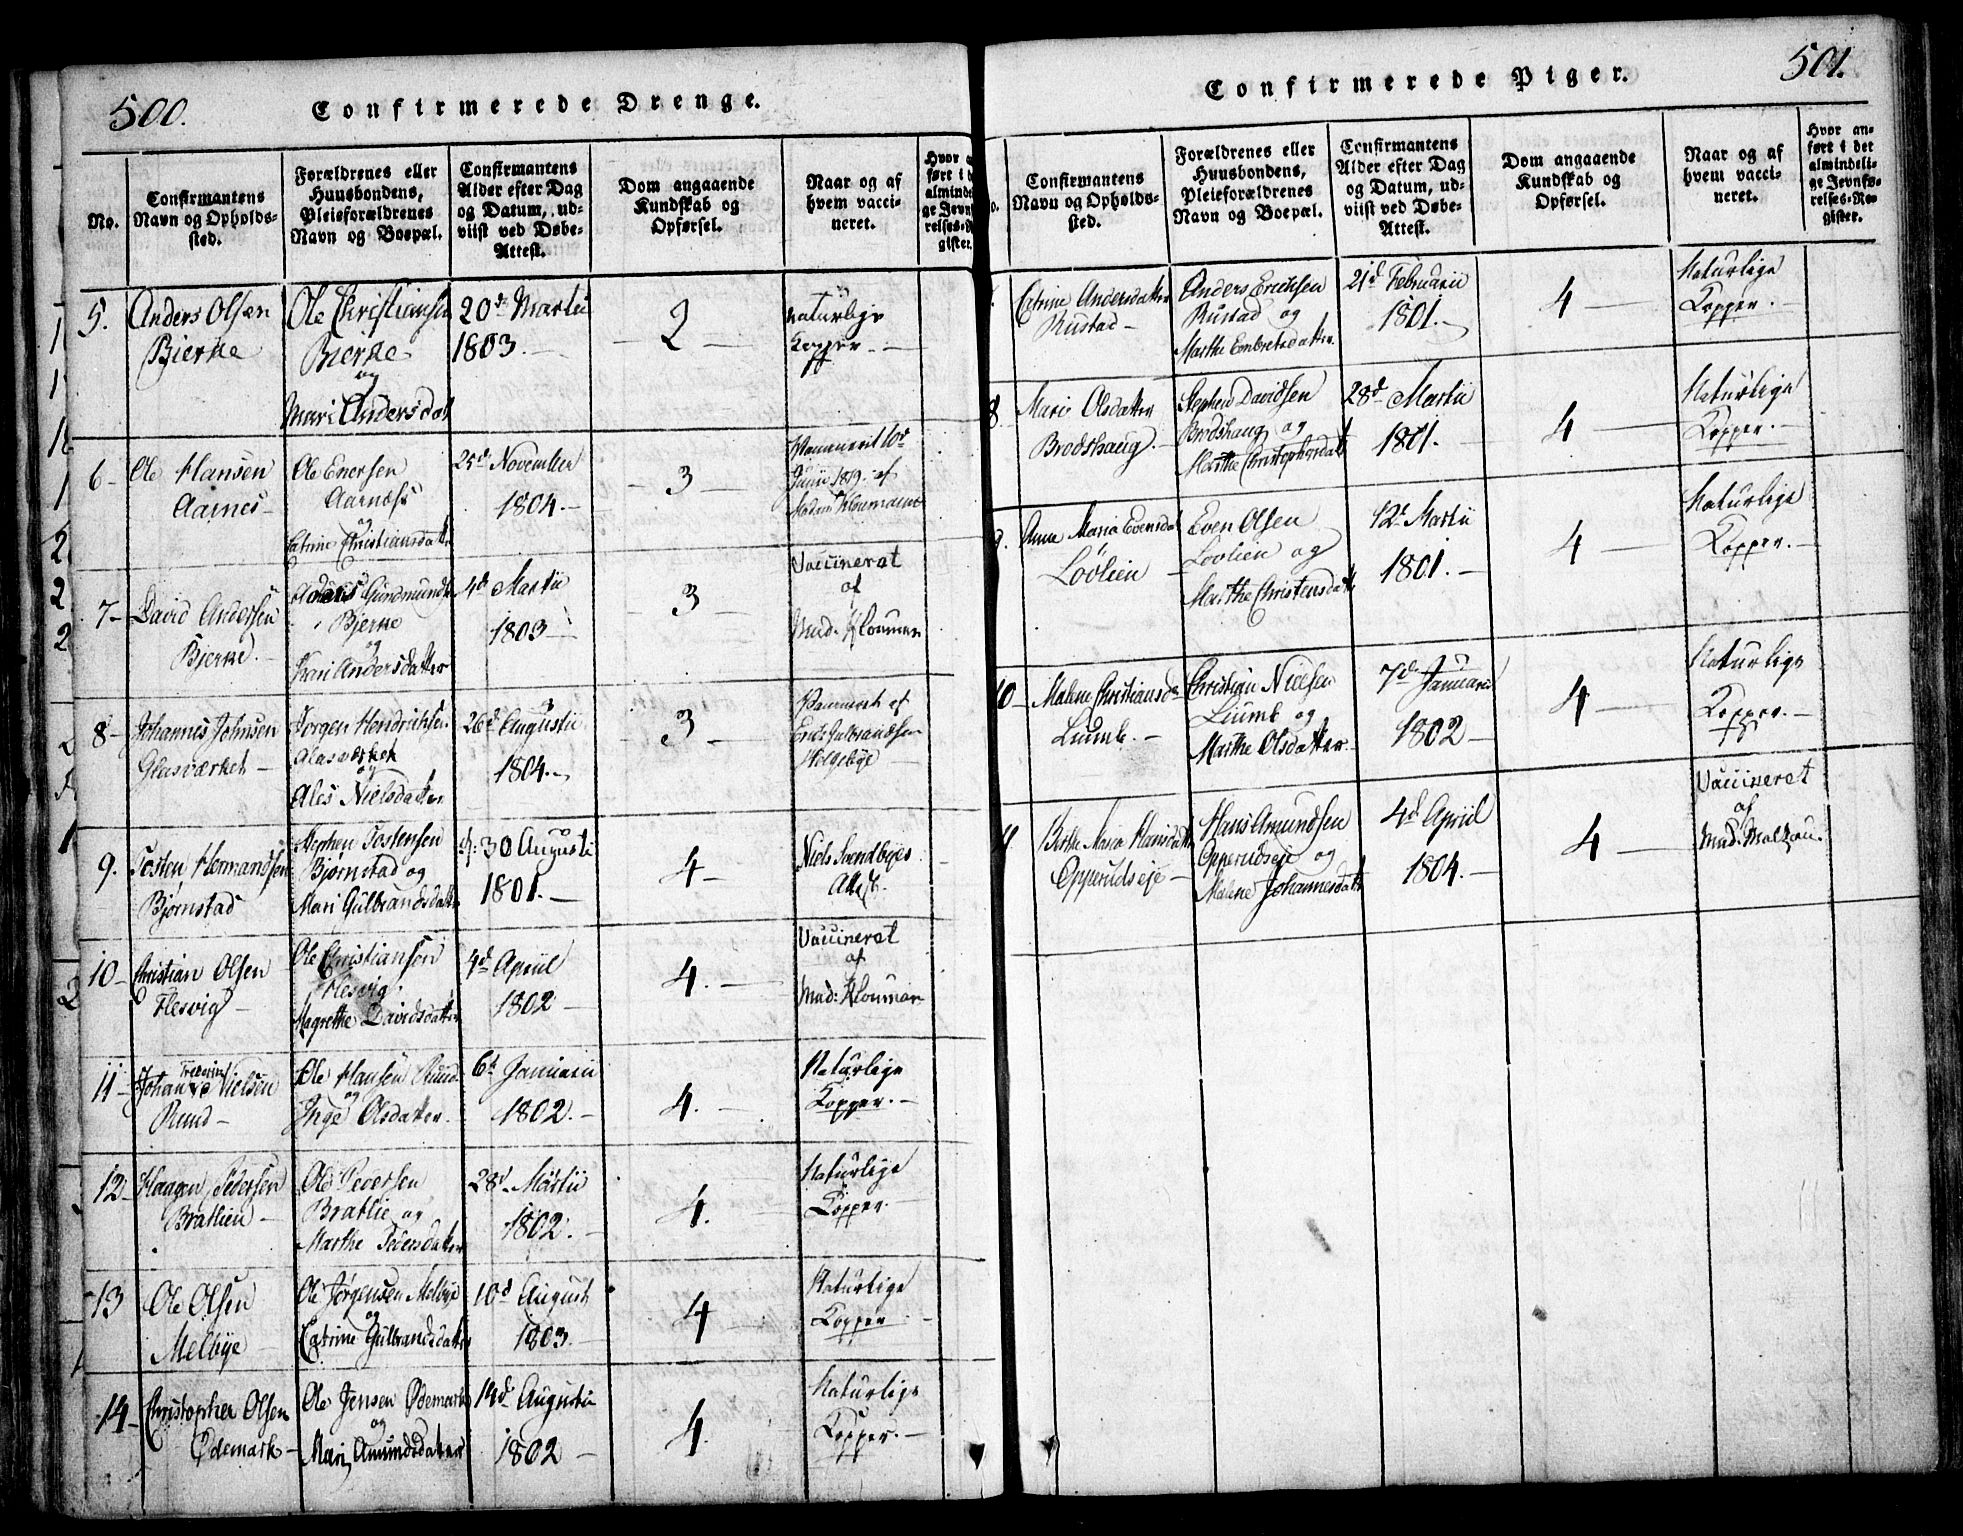 500.
Confirmerede Drenge.
No.
Confirmantens
Navn og Opholds-
sted.
Forældrenes eller
Huusbondens,
Pleieforældrenes
Navn og Boepæl.
Confirmantens
Alder efter Dag
og Datum, ud-
viist ved Døbe-
Attest.
Dom angaaende
Kundskab og
Opførsel.
Naar og af
hvem vacci-
neret.
5.
Anders Olsen
Bierke
Ole Christiansen
Bierke
og
Mari Andersdat
20d. Martii
1803.
2
Naturlige
Kopper.
6
Ole Hansen
Aarnes
Ole Enersen
Aarnæss
og
Catrine Christiansdatter
25d November
1804.
3
Junii 1819. af
7
David Andersen
Bjerke.
Anders Gundmunds
Bjerke
og
Kari Andersdatter
4d Martii
1803
3
Vaccineret
af
Mad: Klouman
8
Johannes Johnsen
Glasværket
Jørgen Hendrichsen
Glasværket
og
Ales Nielsdatter
26d Augustii
1804.
3
af
Erich Gulbrandsen
Helgebye
9.
Tosten Hermandsen
Bjørnstad
Stephen Tostensen
Bjørnstad og
Mari Gulbrandsdatter
30 Augusti
1801.
4
Niels Svendbyes
Attest.
10
Christian Olsen
Flesvig
Ole Christiansen
Flesvig.
Magrethe Davidsdatter
4d Apriil
1802
4.
Vaccineret
af
Mad: Klouman
11
Johan Nielsen
Ruud
Ole Hansen Ruud
og
Inge Olsdatter.
6d Januarii
1802.
4.
Naturlige
Kopper.
12
Haagen Pedersen
Bratlien
Ole Pedersen
Bratlie og
Marthe Pedersdatter
28d. Martii
1802.
4.
Naturlige
Kopper.
13
Ole Olsen
Melbye
Ole Jørgensen Melbye
og
Catrine Gulbrandsdatter
10d August
1803.
4
Naturlige
Kopper.
14
Christopher Olsen
Ødemark
Ole Jensen Ødemark
og
Mari Amundsdatter
14d Augustii
1802
4.
Naturlige
Kopper.
501.
Confirmerede Piger.
Confirmantens
Navn og Opholds-
sted.
Forældrenes eller
Huusbondens,
Pleieforældrenes
Navn og Boepæl.
Confirmantens
Alder efter Dag
og Datum, ud-
viist ved Døbe-
Attest.
Dom angaaende
Kundskab og
Opførsel.
Naar og af
hvem vacci-
neret.
Hvor an-
ført i det
almindeli-
ge Jevnfø-
relses-Re-
gister.
Catrine Andersdatter
Rustad
Anders Erichsen
Rustad og
Marthe Embretsdatter.
21d Februarii
1801.
4
Naturlige
Kopper.
8
Maris Olsdatter
Brodshaug.
Stephen Davidsen
Brodshaug og
Marthe Christophersdatt
28d. Martii
1801.
4
Naturlige
Kopper.
Anne Maria Evensdat
Løvlien
Even Olsen
Løvlien og
Marthe Christensdatter
12d. Martii
1801.
4
Naturlige
Kopper.
10
Malene Christiansd
Liumb.
Christian Nielsen
Liumb og
Marthe Olsdatter.
7d. Januarii
1802
4
Naturlige
Kopper.
11
Birthe Maria Hansdatter
Opperudseje
Hans Amundsen
Opperudseje og
Malene Johannesdatt
4d Apriil
1804.
4
Vaccineret
af
Mad: Maltzau.